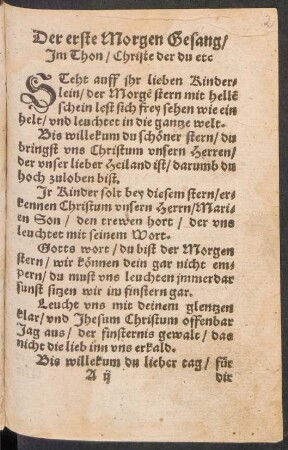 2
Der erste Morgen Gesang/
Im Thon/ Christe der du etc
STeht auff jhr lieben Kinder-
lein/ der Morgē stern mit hellē
schein lest sich frey sehen wie ein
helt/ vnd leuchtet in die gantze welt.
Bis willekum du schöner stern/ du
bringst vns Christum vnsern Herren/
der vnser lieber Heiland ist/ darumb du
hoch zuloben bist.
Ir Kinder solt bey diesem stern/ er-
kennen Christum vnsern Herrn/ Mari-
en Son/ den trewen hort/ der vns
leuchtet mit seinem Wort.
Gotts wort/ du bist der Morgen
stern/ wir können dein gar nicht em-
pern/ du must vns leuchten jmmerdar
sunst sitzen wir im finstern gar.
Leucht vns mit deinem glentzen
klar/ vnd Jhesum Christum offenbar
Jag aus/ der finsternis gewalt/ das
nicht die lieb inn vns erkald.
Bis willekum du lieber tag/ für
A ij
dir